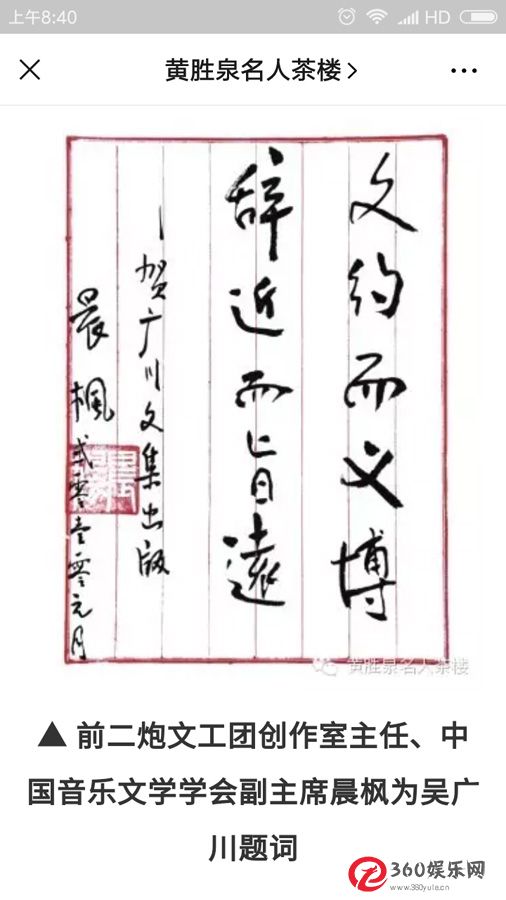 上午8:40
HD
黄胜泉名人茶楼
文约而义博
辞近而旨遠
贺广川文集出版
晨楓贰零壹零元月
黄胜泉名人茶楼
▲ 前二炮文工团创作室主任、中
国音乐文学学会副主席晨枫为吴广
川题词
360娱乐网
www.360yule.cn